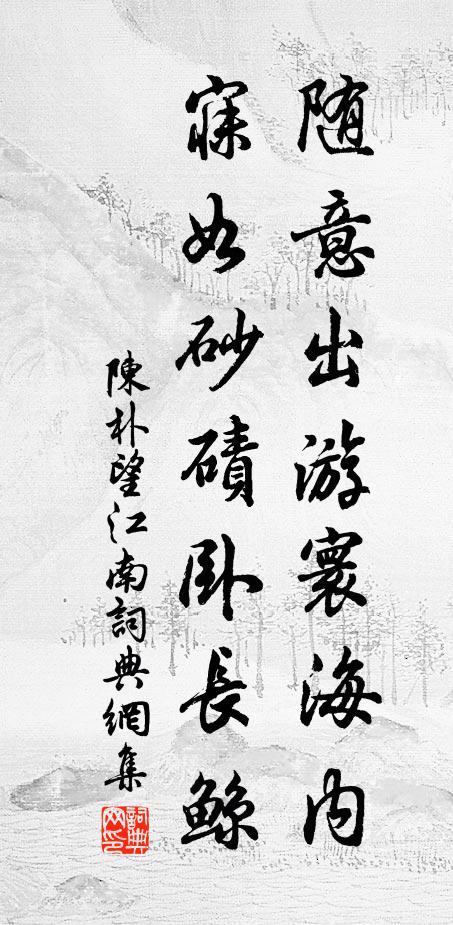 随意出游寰海内
寐如砂磧卧長鯨
陳朴望江南詞典網集
詞典網印